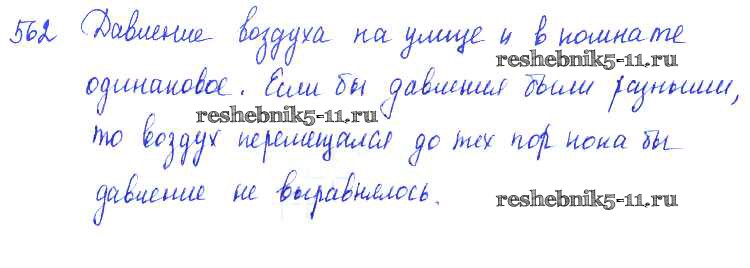 562 Давление воздуха на улице и в комнате
reshebnik5-11.ru
одинаковое. Если бы давления были разными,
reshebnik5-11.ru
то воздух перемещался до тех пор пока бы
давление не выравнялось.
reshebnik5-11.ru